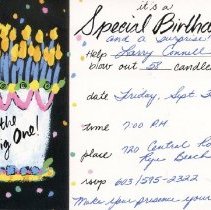 the
Big One!
it's a
Special Birthda
and a surprise!
Help Larry Connell
blow out 58 candle
date Friday, Sept
time 7:00 P.M
place 720 Central Ro
Rye Beach
rsvp 603/595-2322
Make your presence your